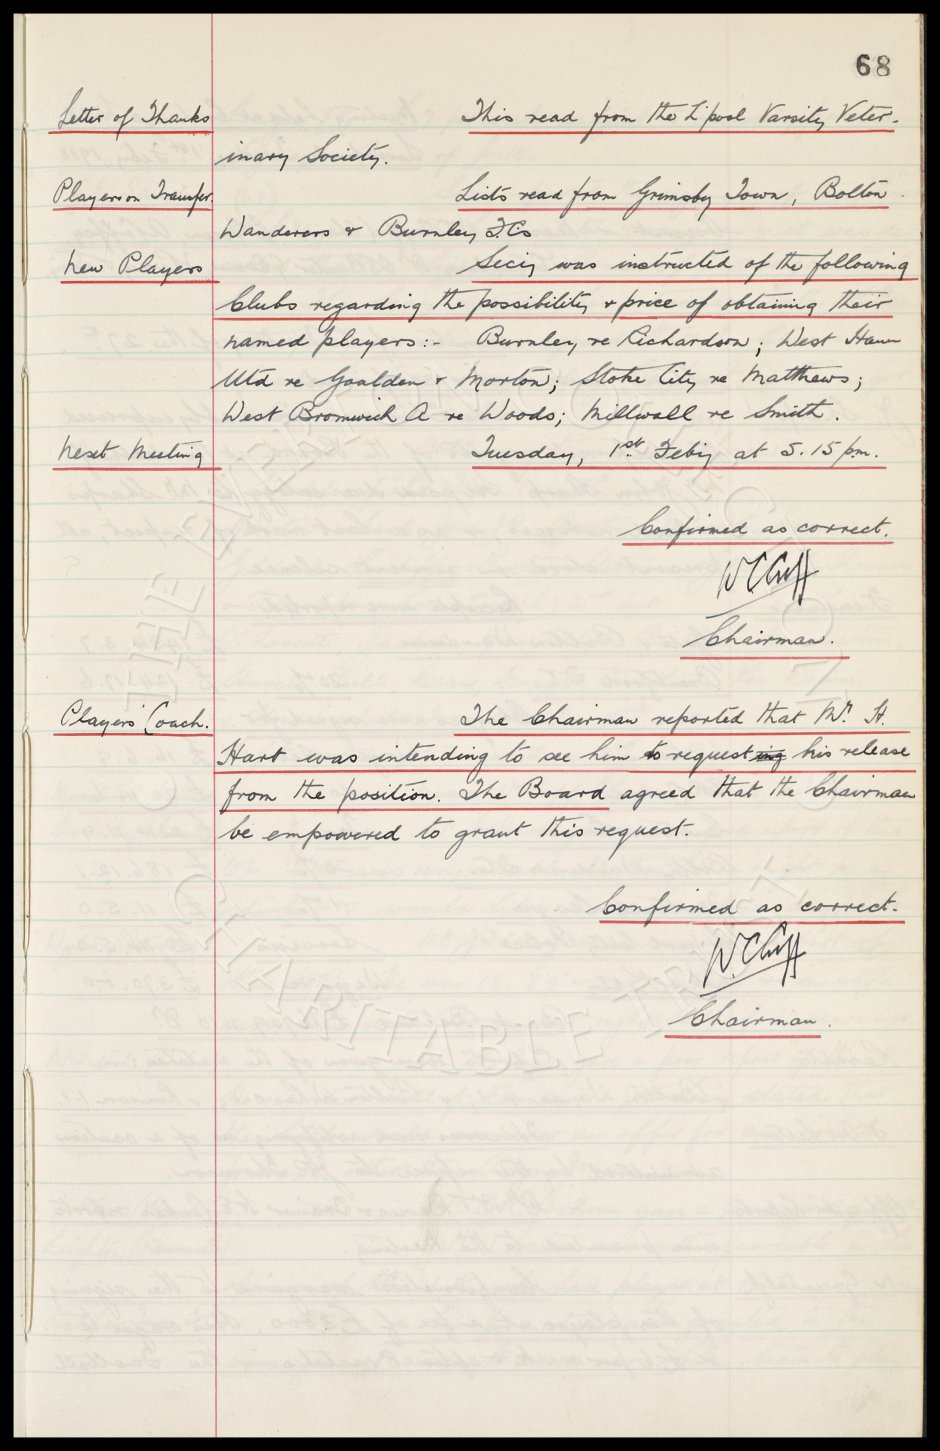 68
Letter of Thanks This read from the L'pool Varsity Veter-
inary Society.
Players on Transfer. Lists read from Grimsby Town, Bolton
Wanderers & Burnley F.Cs
New Players Secy was instructed of the following
Clubs regarding the possibility & price of obtaining their
named players:- Burnley re Richardson; West Ham
Utd re Goulden & Morton; Stoke City re Matthews;
West Bromwich A re Woods; Millwall re Smith.
Next Meeting Tuesday, 1st Feby at 5.15 pm.
Confirmed as correct.
W C Cuff
Chairman.
Players' Coach. The Chairman reported that Mr. H.
Hart was intending to see him to requesting his release
from the position. The Board agreed that the Chairman
be empowered to grant this request.
Confirmed as correct.
W. C Cuff
Chairman.
THE EVERTON COLLECTION CHARITABLE TRUST